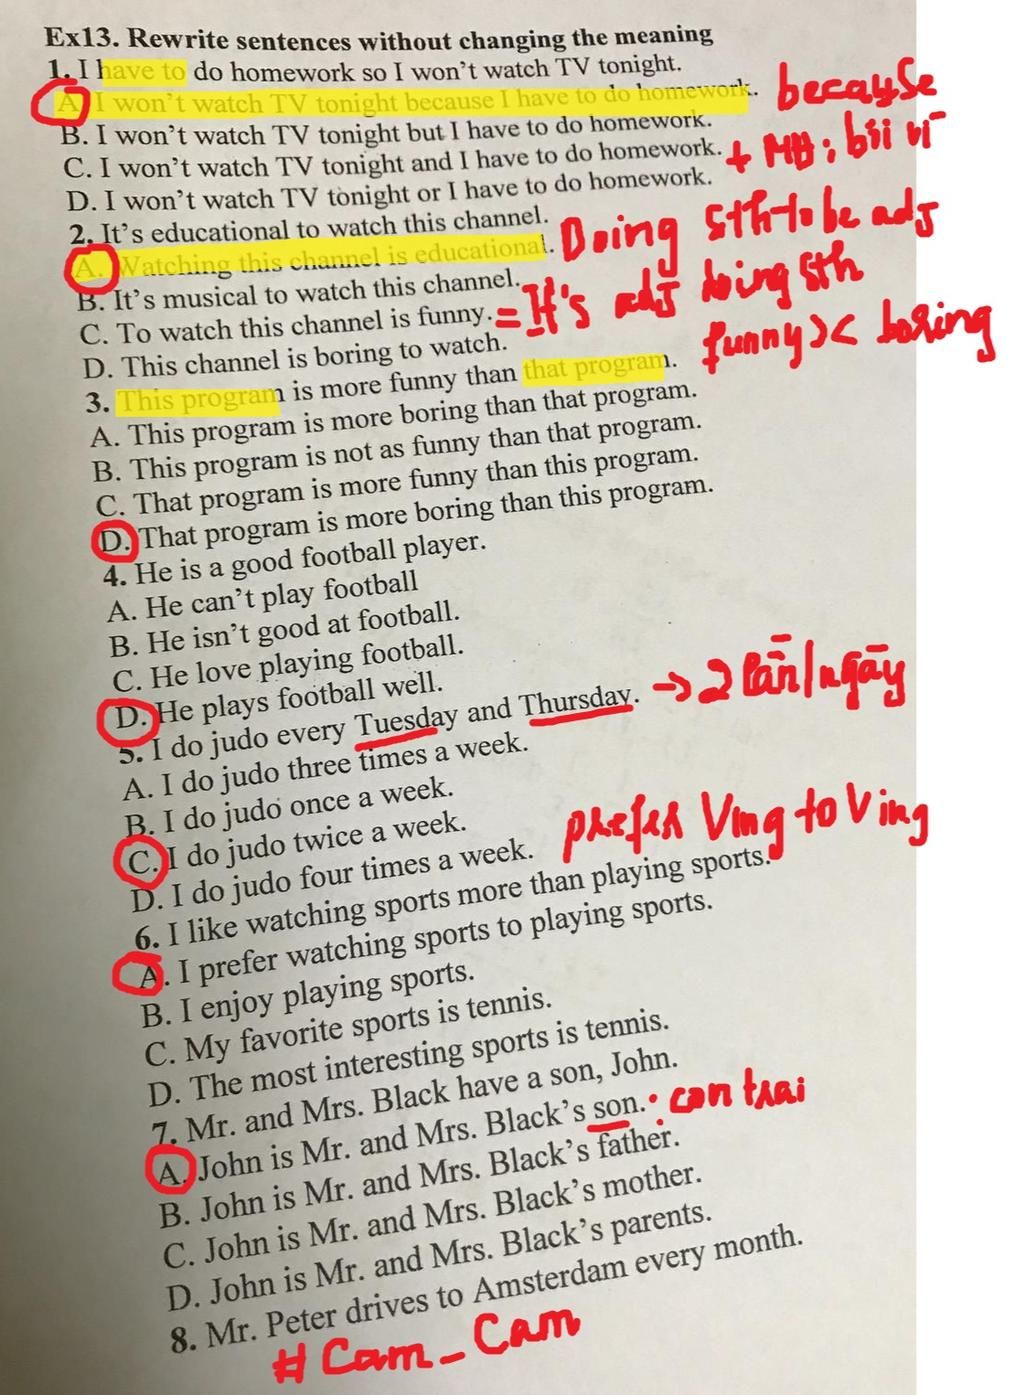 Ex13. Rewrite sentences without changing the meaning
1. I have to do homework so I won't watch TV tonight.
A. I won't watch TV tonight because I have to do homework. because
B. I won't watch TV tonight but I have to do homework.
C. I won't watch TV tonight and I have to do homework. + MĐ: bởi vì
D. I won't watch TV tonight or I have to do homework.
2. It's educational to watch this channel.
A. Watching this channel is educational. Doing sth to be adj
B. It's musical to watch this channel.
C. To watch this channel is funny. = It's adj doing sth
D. This channel is boring to watch. funny >< boring
3. This program is more funny than that program.
A. This program is more boring than that program.
B. This program is not as funny than that program.
C. That program is more funny than this program.
D. That program is more boring than this program.
4. He is a good football player.
A. He can't play football
B. He isn't good at football.
C. He love playing football.
D. He plays football well.
5. I do judo every Tuesday and Thursday. → 2 lần/ngày
A. I do judo three times a week.
B. I do judo once a week.
C. I do judo twice a week.
D. I do judo four times a week. prefer Ving to Ving
6. I like watching sports more than playing sports.
A. I prefer watching sports to playing sports.
B. I enjoy playing sports.
C. My favorite sports is tennis.
D. The most interesting sports is tennis.
7. Mr. and Mrs. Black have a son, John.
A. John is Mr. and Mrs. Black's son. : con trai
B. John is Mr. and Mrs. Black's father.
C. John is Mr. and Mrs. Black's mother.
D. John is Mr. and Mrs. Black's parents.
8. Mr. Peter drives to Amsterdam every month.
# Cam_Cam